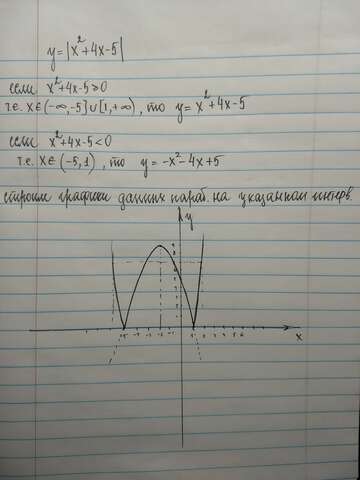 y=|x²+4x-5|
если x²+4x-5≥0
т.е. x∈(-∞,-5]∪[1,+∞), то y=x²+4x-5
если x²+4x-5<0
т.е. x∈(-5,1), то y=-x²-4x+5
строим графики данных параб. на указанном интерв.
y
x